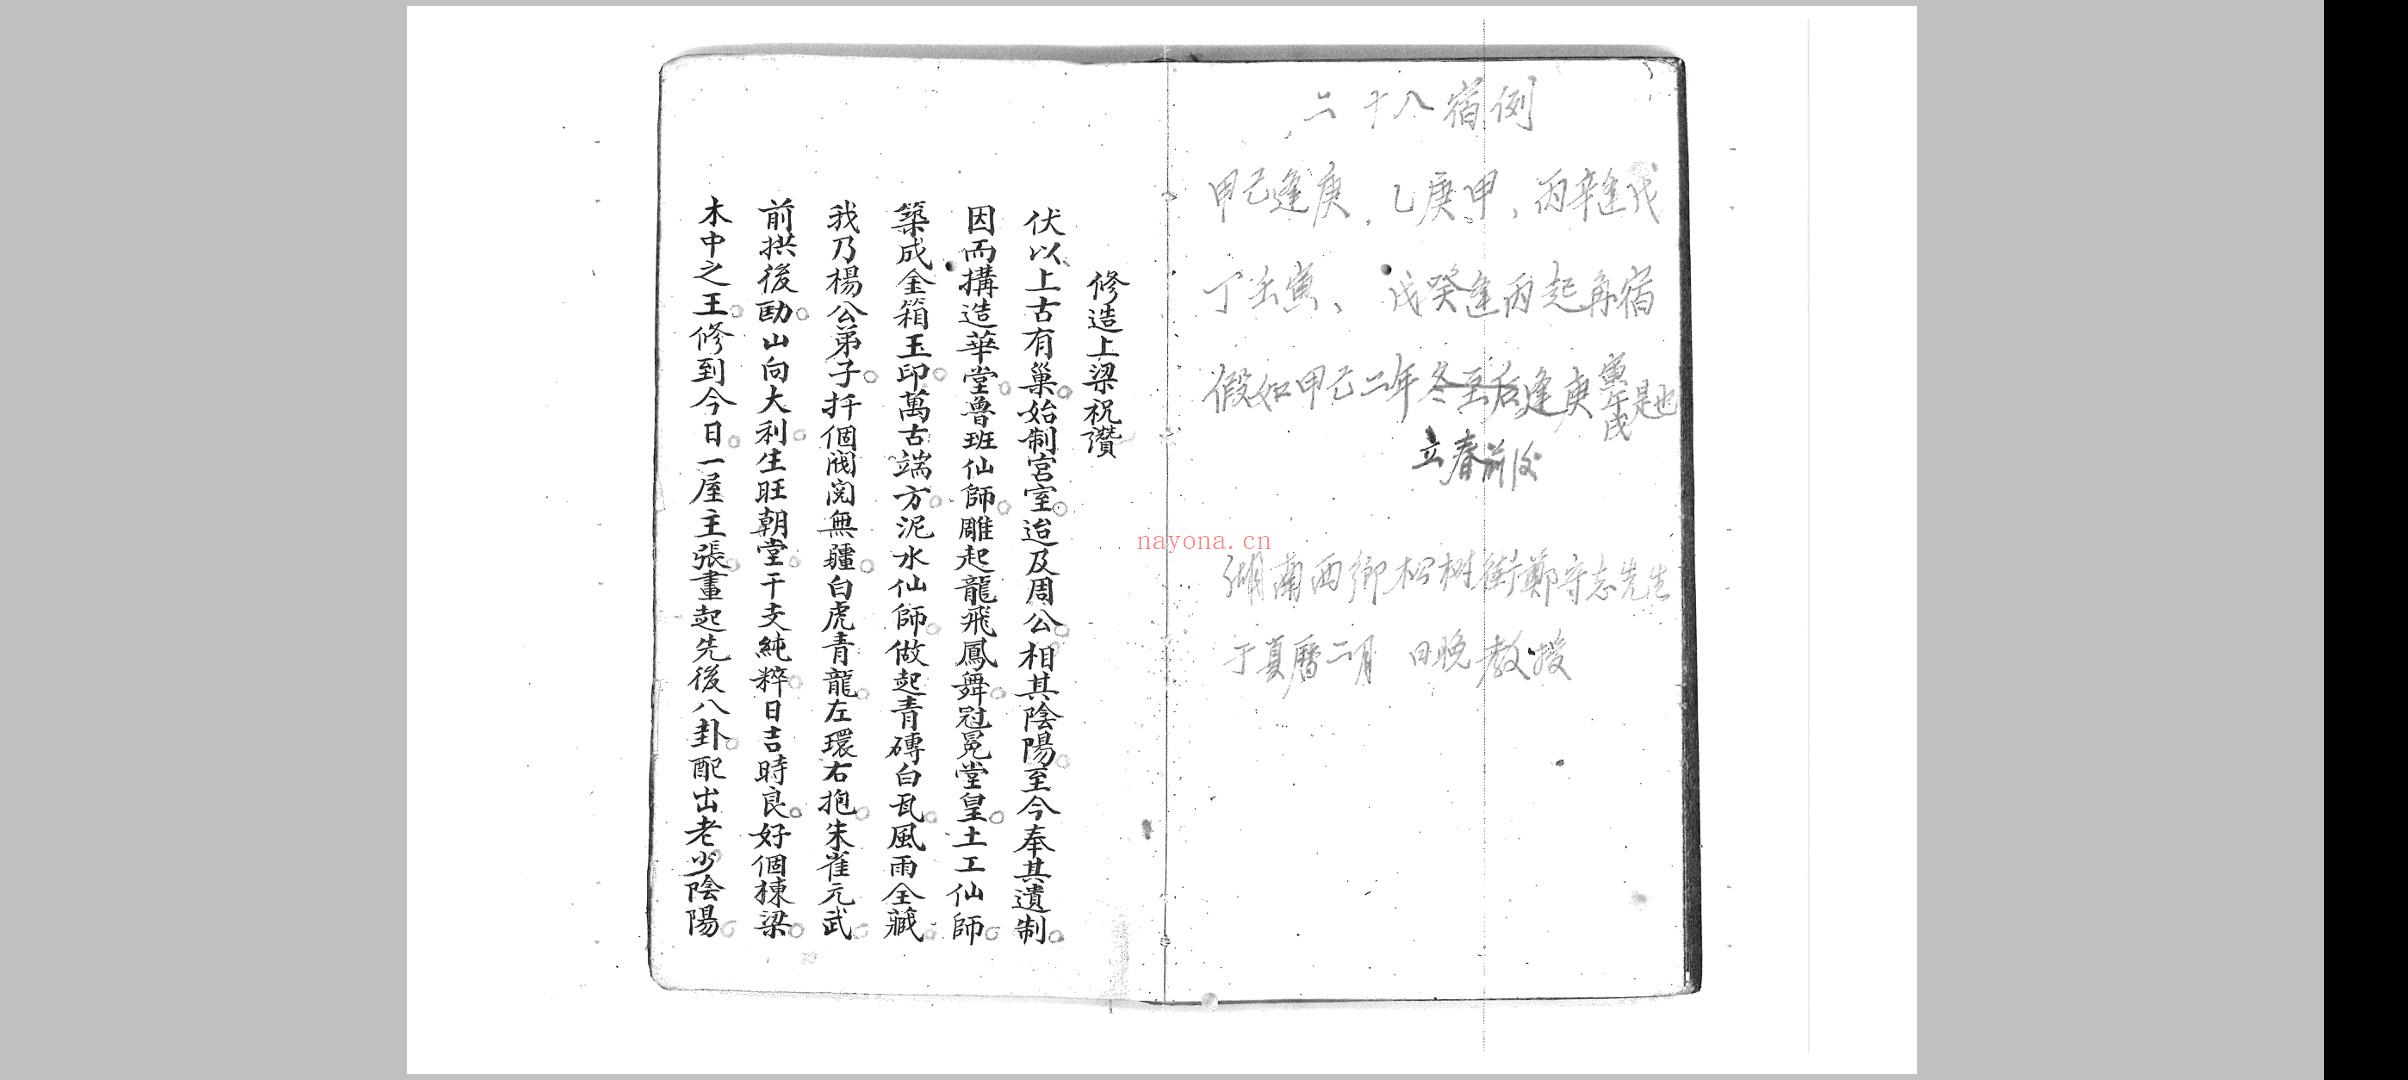 二十八宿例
甲己逢庚、乙庚申、丙辛逢戊
丁壬寅、戊癸逢丙起角宿
假如甲己二年冬至后逢庚寅午戌是也
立春前后
湖南西鄉松树街鄭守志先生
于真曆二月 日晚教授
修造上梁祝讚
伏以上古有巢始制宮室迨及周公相其陰陽至今奉其遺制
因而搆造華堂魯班仙師雕起龍飛鳳舞冠冕堂皇土工仙師
築成金箱玉印萬古端方泥水仙師做起青磚白瓦風雨全藏
我乃楊公弟子扦個閥閱無疆白虎青龍左環右抱朱雀元武
前拱後山向大利生旺朝堂干支純粹日吉時良好個棟梁
木中之王修到今日一屋主張畫起先後八卦配出老少陰陽
nayona.cn